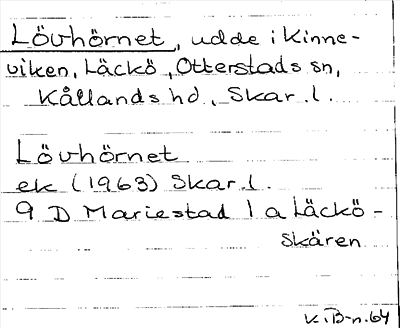 Lövhörnet, udde i Kinne-
viken, Läckö, Otterstads sn,
Kållands hd, Skar.l.
Lövhörnet
ek (1963) Skar.l.
9 D Mariestad 1 a Läckö-
skären
K.B-n.64